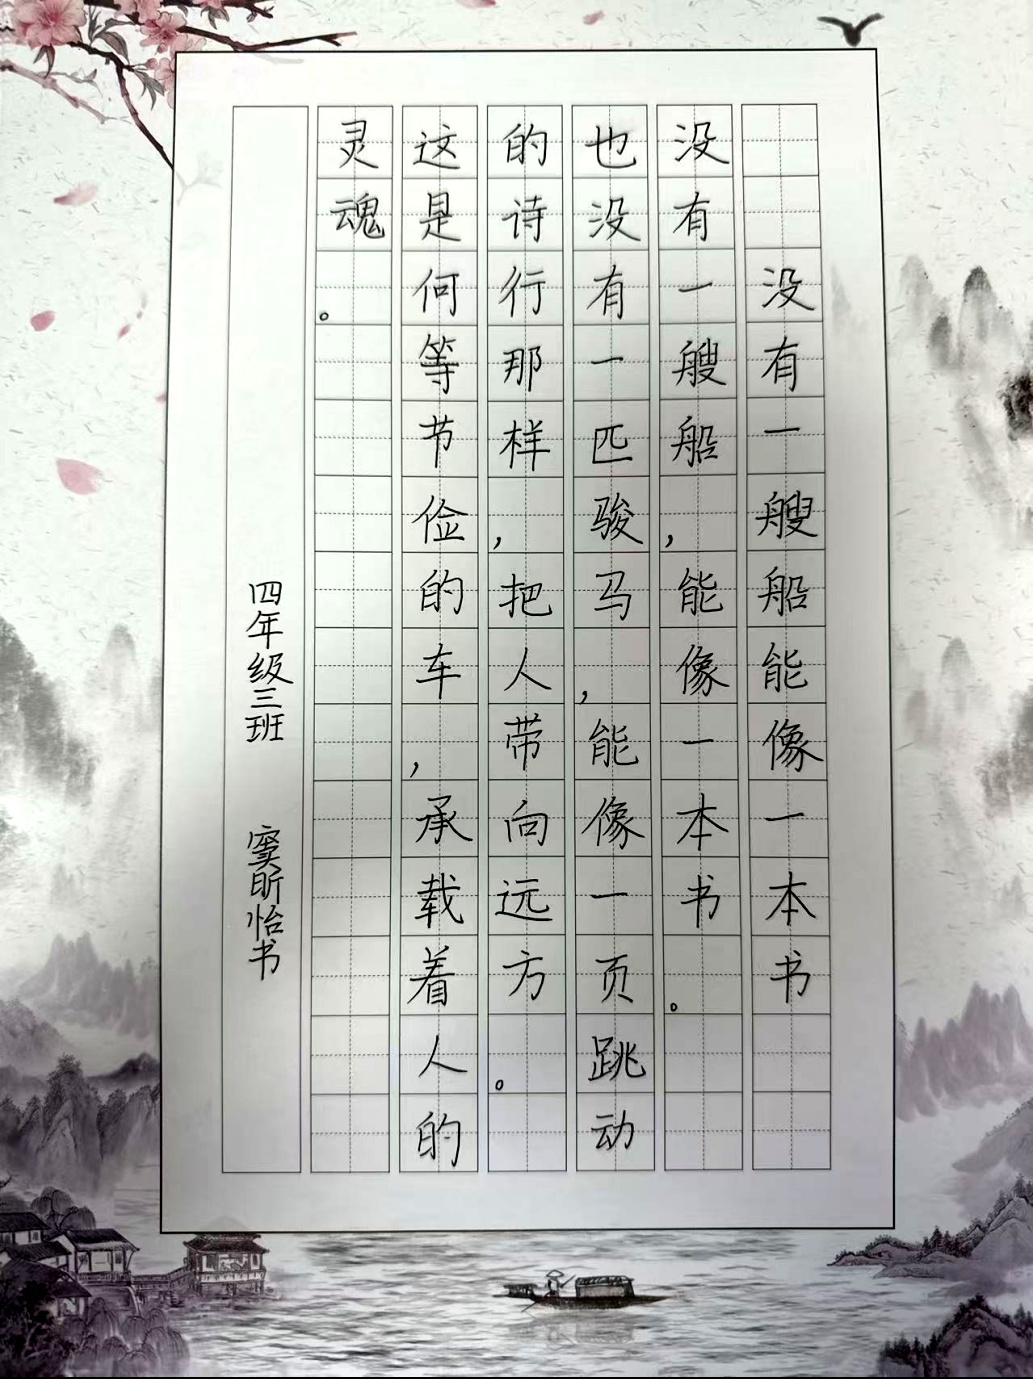 没有一艘船能像一本书
没有一艘船，能像一本书。
也没有一匹骏马，能像一页跳动
的诗行那样，把人带向远方。
这是何等节俭的车，承载着人的
灵魂。
四年级三班 窦昕怡书